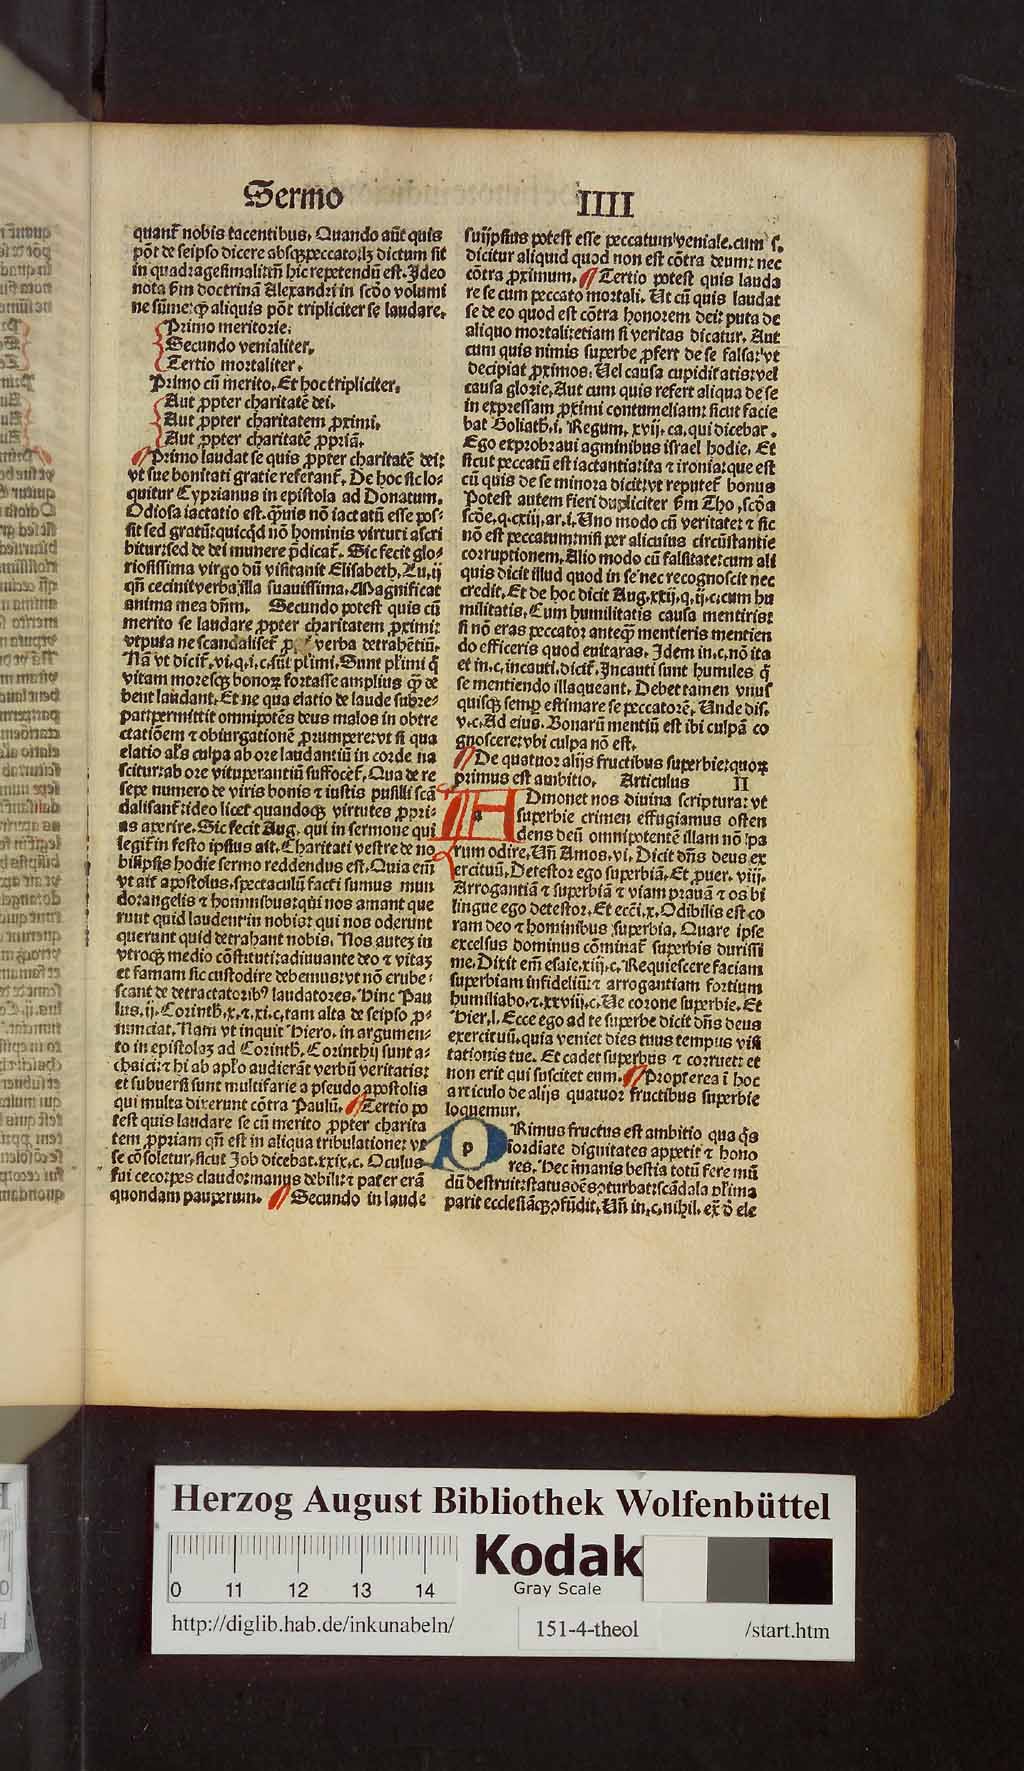 Sermo IIII
quant᷑ nobis tacentibus, Quando aũt quis
põt de seipso dicere absqꝫ peccato: lꝫ dictum sit
in quadragesimali: tñ hic repetendũ est. Ideo
nota ẜm doctrinã Alexandri in scđo volumi
ne sũme: ꝙ aliquis põt tripliciter se laudare.
Primo meritorie.
Secundo venialiter.
Tertio mortaliter.
Primo cũ merito. Et hoc tripliciter.
Aut ꝓpter charitatẽ dei.
Aut ꝓpter charitatem ꝓximi.
Aut ꝓpter charitatẽ ꝓpriã.
Primo laudat se quis ꝓpter charitatẽ dei:
vt sue bonitati gratie referant᷑. De hoc sic lo⸗
quitur Cyprianus in epistola ad Donatum.
Odiosa iactatio est. ꝙ̃uis nõ iactatũ esse pos⸗
sit sed gratũ: quicqd nõ hominis virtuti ascri
bitur: sed de dei munere p̄dicat᷑. Sic fecit glo⸗
riosissima virgo dũ visitauit Elisabeth. Lu. ij
qñ cecinit verba illa suauissima. Magnificat
anima mea dñm. Secundo potest quis cũ
merito se laudare ꝓpter charitatem ꝓximi:
vtputa ne scandaliset᷑ verba detrahẽtiũ.
Nã vt dicit᷑. vi. q. i. c. sũt pl̃imi. Sunt pl̃imi q̃
vitam moresqꝫ bonoꝝ fortasse amplius ꝙ̃ de
bent laudant. Et ne qua elatio de laude subre⸗
pat: permittit omnipotẽs deus malos in obtre
ctatiõem ⁊ obiurgationẽ ꝓrumpere: vt si qua
elatio al̃s culpa ab ore laudantiũ in corde na
scitur: ab ore vituperantiũ suffocet᷑. Qua de re
sepe numero de viris bonis ⁊ iustis pusilli scã
dalisant᷑: ideo licet quandoqꝫ virtutes ꝓpri⸗
as aperire. Sic fecit Aug. qui in sermone qui
legit᷑ in festo ipsius ait. Charitati vestre de no
bisipsis hodie sermo reddendus est. Quia em̃
vt ait apostolus. spectaculũ facti sumus mun
do: angelis ⁊ hominibus: qui nos amant que
runt quid laudent in nobis: qui nos oderunt
querunt quid detrahant nobis. Nos auteꝫ in
vtroqꝫ medio cõstituti: adiuuante deo ⁊ vitaꝫ
et famam sic custodire debemus: vt nõ erube⸗
scant de detractatoribꝰ laudatores. Hinc Pau
lus. ij. Corinth. x. ⁊. xi. c. tam alta de seipso ꝓ⸗
nunciat. Nam vt inquit Hiero. in argumen⸗
to in epistolaꝫ ad Corinth. Corinthij sunt a⸗
chaici: ⁊ hi ab apl̃o audierãt verbũ veritatis:
et subuersi sunt multifarie a pseudo apostolis
qui multa dixerunt cõtra Paulũ. Tertio po
test quis laudare se cũ merito ꝓpter charita
tem ꝓpriam qñ est in aliqua tribulatione: vt
se cõsoletur. sicut Job dicebat. xxix. c. Oculus
fui ceco: pes claudo: manus debili: ⁊ pater erã
quondam pauperum. Secundo in laude
suijpsius potest esse peccatum veniale. cum s.
dicitur aliquid quod non est cõtra deum: nec
cõtra ꝓximum. Tertio potest quis lauda
re se cum peccato mortali. Ut cũ quis laudat
se de eo quod est cõtra honorem dei: puta de
aliquo mortali: etiam si veritas dicatur. Aut
cum quis nimis superbe ꝓfert de se falsa: vt
decipiat ꝓximos: Uel causa cupiditatis: vel
causa glorie. Aut cum quis refert aliqua de se
in expressam ꝓximi contumeliam: sicut facie
bat Goliath. i. Regum. xvij. ca. qui dicebat.
Ego exprobraui agminibus israel hodie. Et
sicut peccatũ est iactantia: ita ⁊ ironia: que est
cũ quis de se minora dicit: vt reputet᷑ bonus
Potest autem fieri dupliciter ẜm Tho. scđa
scđe. q. cxiij. ar. i. Uno modo cũ veritate: ⁊ sic
nõ est peccatum: nisi per alicuius circũstantie
corruptionem. Alio modo cũ falsitate: cum ali
quis dicit illud quod in se nec recognoscit nec
credit. Et de hoc dicit Aug. xxij. q. ij. c. cum hu
militatis. Cum humilitatis causa mentiris:
si nõ eras peccator anteqꝫ mentieris mentien
do efficeris quod euitaras. Idem in. c. nõ ita
et in. c. incauti. dicit᷑. Incauti sunt humiles q̃
se mentiendo illaqueant. Debet tamen vnus
quisqꝫ semꝑ estimare se peccatorẽ. Unde dis.
v. c. Ad eius. Bonarũ mentiũ est ibi culpã co
gnoscere: vbi culpa nõ est.
De quatuor alijs fructibus superbie: quoꝝ
primus est ambitio. Articulus II
ADmonet nos diuina scriptura: vt
superbie crimen effugiamus osten
dens deũ omnipotentẽ illam nõ pa
rum odire. Uñ Amos. vi. Dicit dñs deus ex
ercituũ. Detestor ego superbiã. Et ꝓuer. viij.
Arrogantiã ⁊ superbiã ⁊ viam prauã ⁊ os bi
lingue ego detestor. Et ecc̃i. x. Odibilis est co
ram deo ⁊ hominibus superbia. Quare ipse
excelsus dominus cõminat᷑ superbis durissi
me. Dixit em̃ esaie. xiij. c. Requiescere faciam
superbiam infideliũ: ⁊ arrogantiam fortium
humiliabo. ⁊. xxviij. c. Ue corone superbie. Et
Hier. l. Ecce ego ad te superbe dicit dñs deus
exercituũ. quia veniet dies tuus tempus visi
tationis tue. Et cadet superbus ⁊ corruet: et
non erit qui suscitet eum. Propterea ĩ hoc
articulo de alijs quatuor fructibus superbie
loquemur.
PRimus fructus est ambitio qua q̃s
ĩordiate dignitates appetit ⁊ hono
res. Hec ĩmanis bestia totũ fere mũ
dũ destruit: status oẽs ꝑturbat: scãdala pl̃ima
parit ecclesiãqꝫ ꝯfũdit. Uñ in. c. nihil. ex̃ đ ele
Herzog August Bibliothek Wolfenbüttel
0 11 12 13 14
Kodak
Gray Scale
http://diglib.hab.de/inkunabeln/ 151-4-theol /start.htm